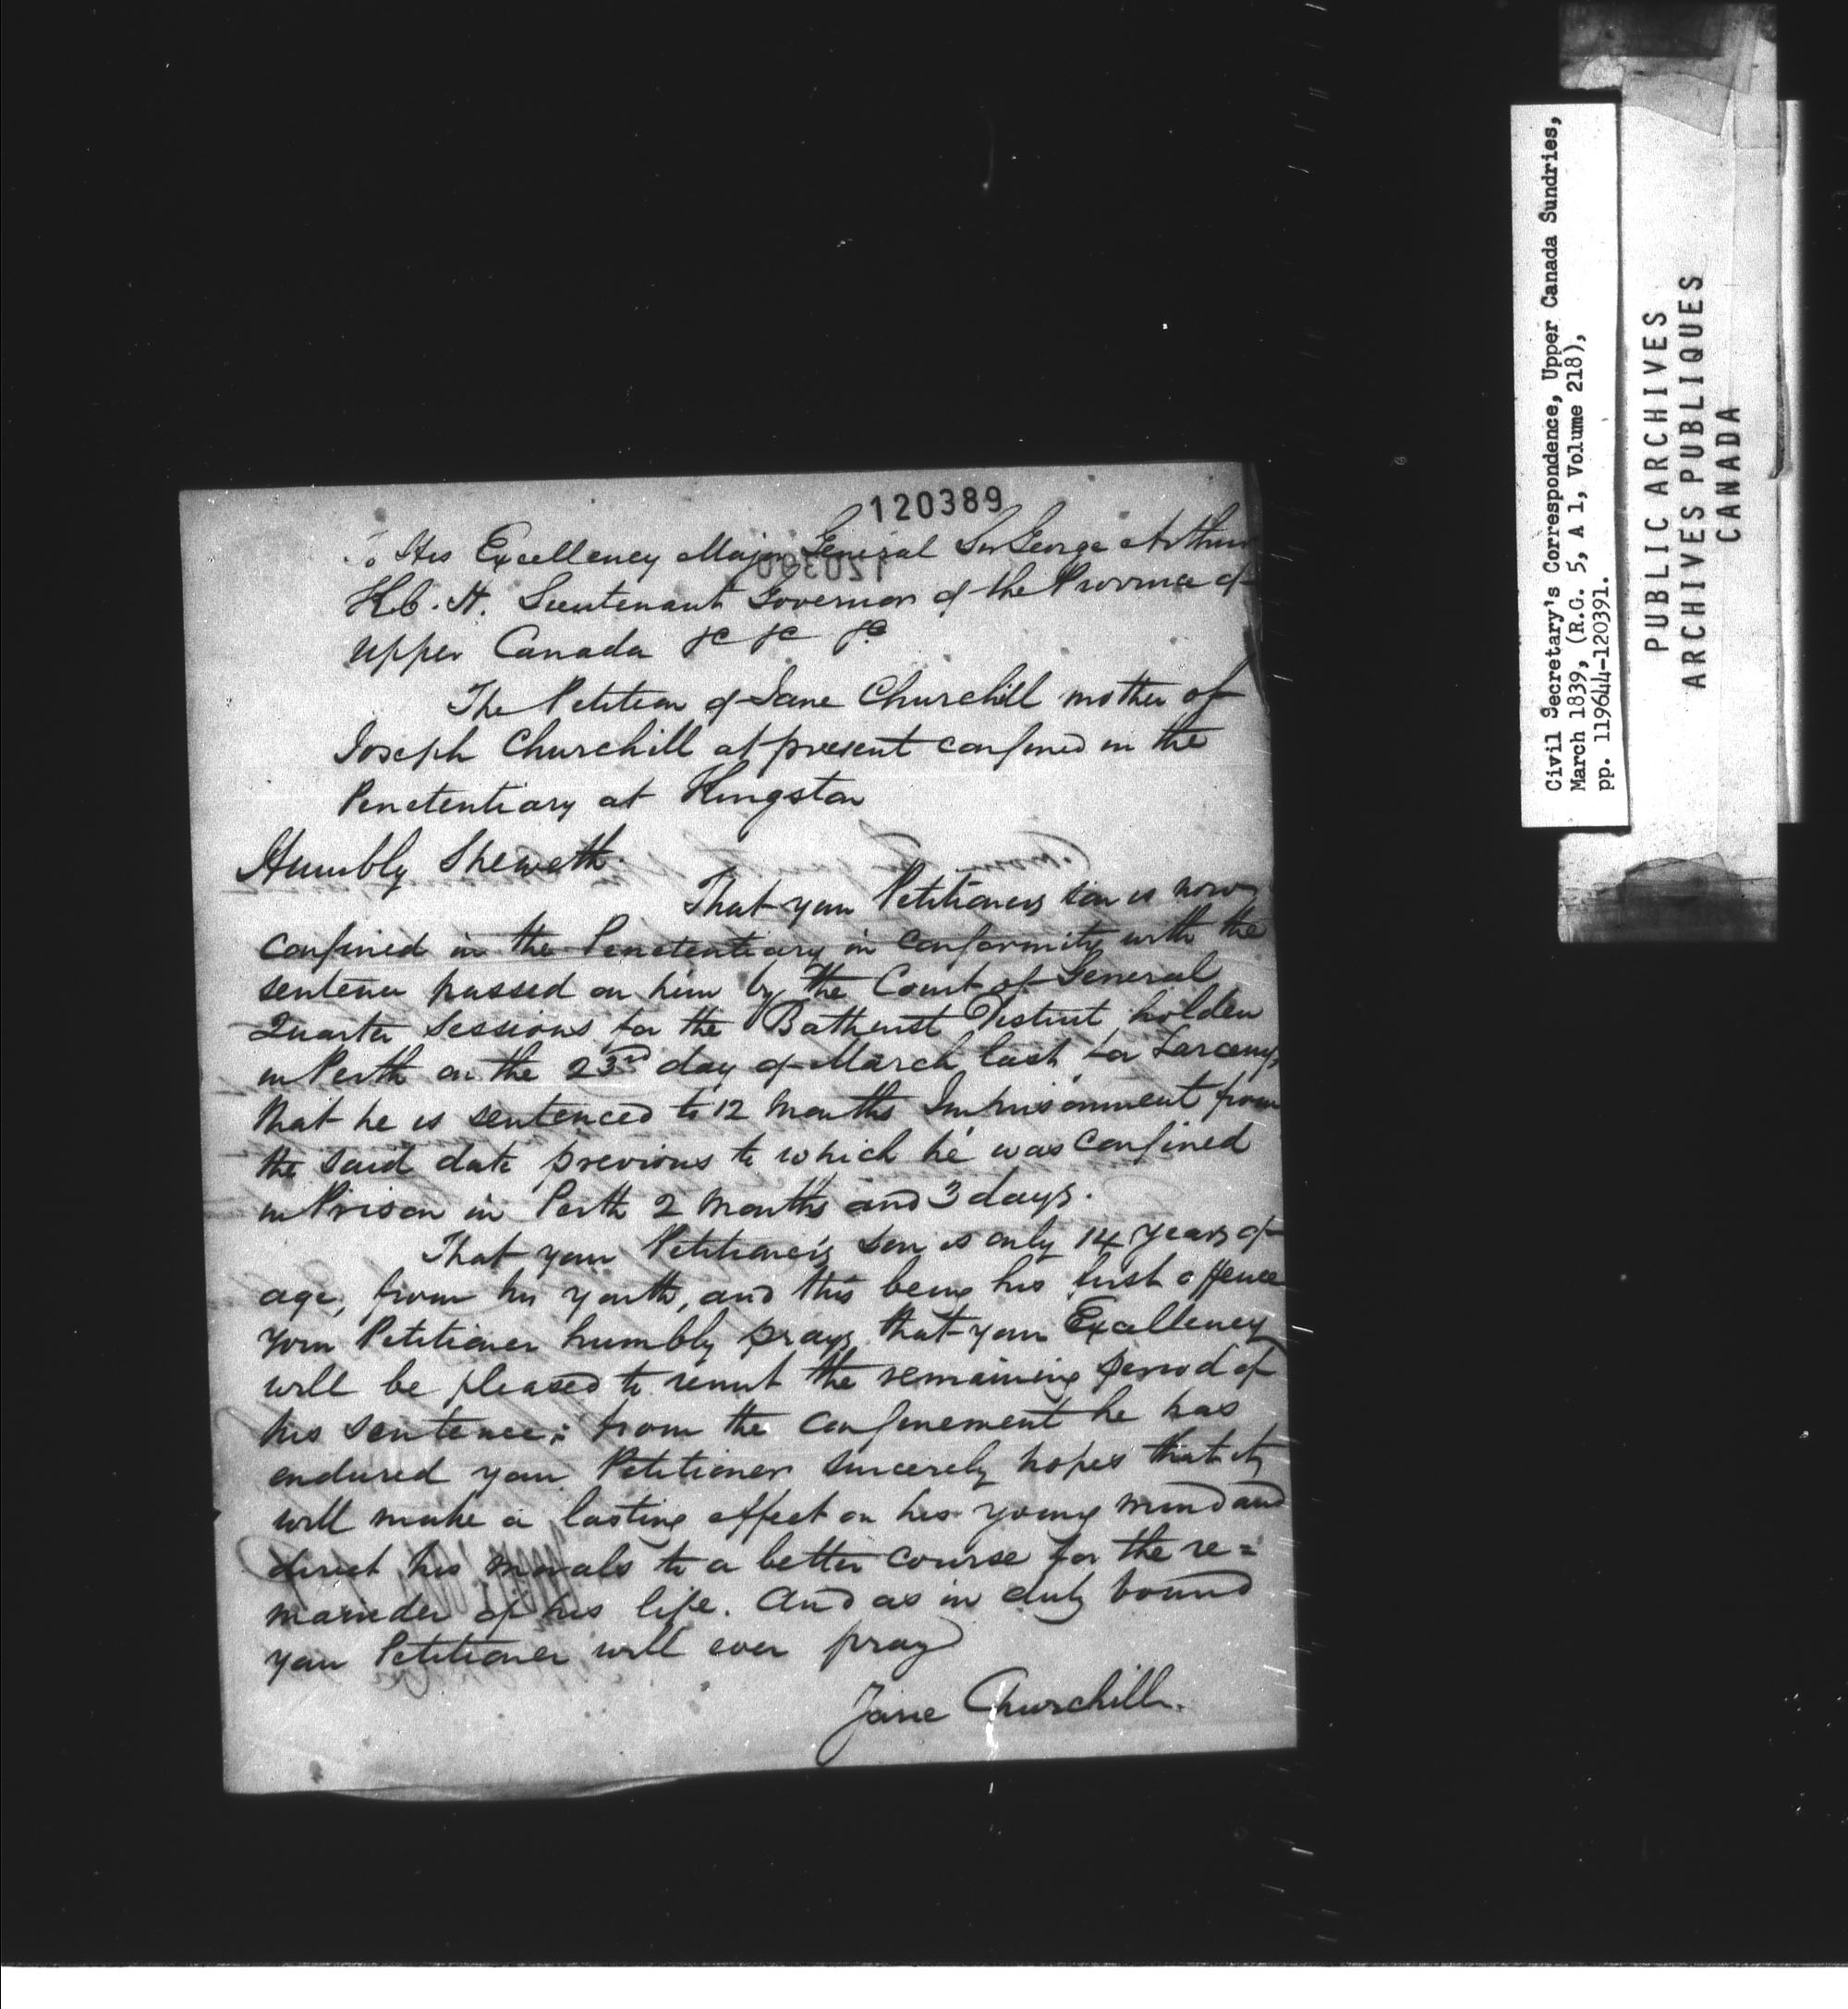 120389
To His Excellency Major General Sir George Arthur
K.C.H. Lieutenant Governor of the Province of
Upper Canada &c &c &c
The Petition of Jane Churchill mother of
Joseph Churchill at present confined in the
Penetentiary at Kingston
Humbly Sheweth.
That your Petitioners son is now
confined in the Penetentiary in conformity with the
sentence passed on him by the Court of General
Quarter Sessions for the Bathurst District holden
in Perth on the 23rd day of March last for Larceny,
that he is sentenced to 12 months Imprisonment from
the said date previous to which he was confined
in Prison in Perth 2 months and 3 days.
That your Petitioner's son is only 14 years of
age, from his youth, and this being his first offence
your Petitioner humbly prays that your Excellency
will be pleased to remit the remaining period of
his sentence; from the confinement he has
endured your Petitioner sincerely hopes that it
will make a lasting effect on his young mind and
direct his morals to a better course for the re=
mainder of his life. And as in duty bound
your Petitioner will ever pray
Jane Churchill.
Civil Secretary's Correspondence, Upper Canada Sundries,
March 1839, (R.G. 5, A 1, Volume 218),
pp. 119644-120391.
PUBLIC ARCHIVES
ARCHIVES PUBLIQUES
CANADA